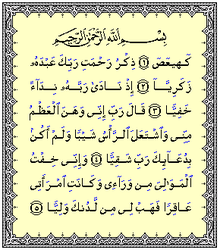 بِسْمِ ٱللَّهِ ٱلرَّحْمَٰنِ ٱلرَّحِيمِ
كٓهيعٓصٓ ۝١ ذِكْرُ رَحْمَتِ رَبِّكَ عَبْدَهُۥ
زَكَرِيَّآ ۝٢ إِذْ نَادَىٰ رَبَّهُۥ نِدَآءً
خَفِيًّا ۝٣ قَالَ رَبِّ إِنِّى وَهَنَ ٱلْعَظْمُ
مِنِّى وَٱشْتَعَلَ ٱلرَّأْسُ شَيْبًا وَلَمْ أَكُنۢ
بِدُعَآئِكَ رَبِّ شَقِيًّا ۝٤ وَإِنِّى خِفْتُ
ٱلْمَوَٰلِىَ مِن وَرَآءِى وَكَانَتِ ٱمْرَأَتِى
عَاقِرًا فَهَبْ لِى مِن لَّدُنكَ وَلِيًّا ۝٥